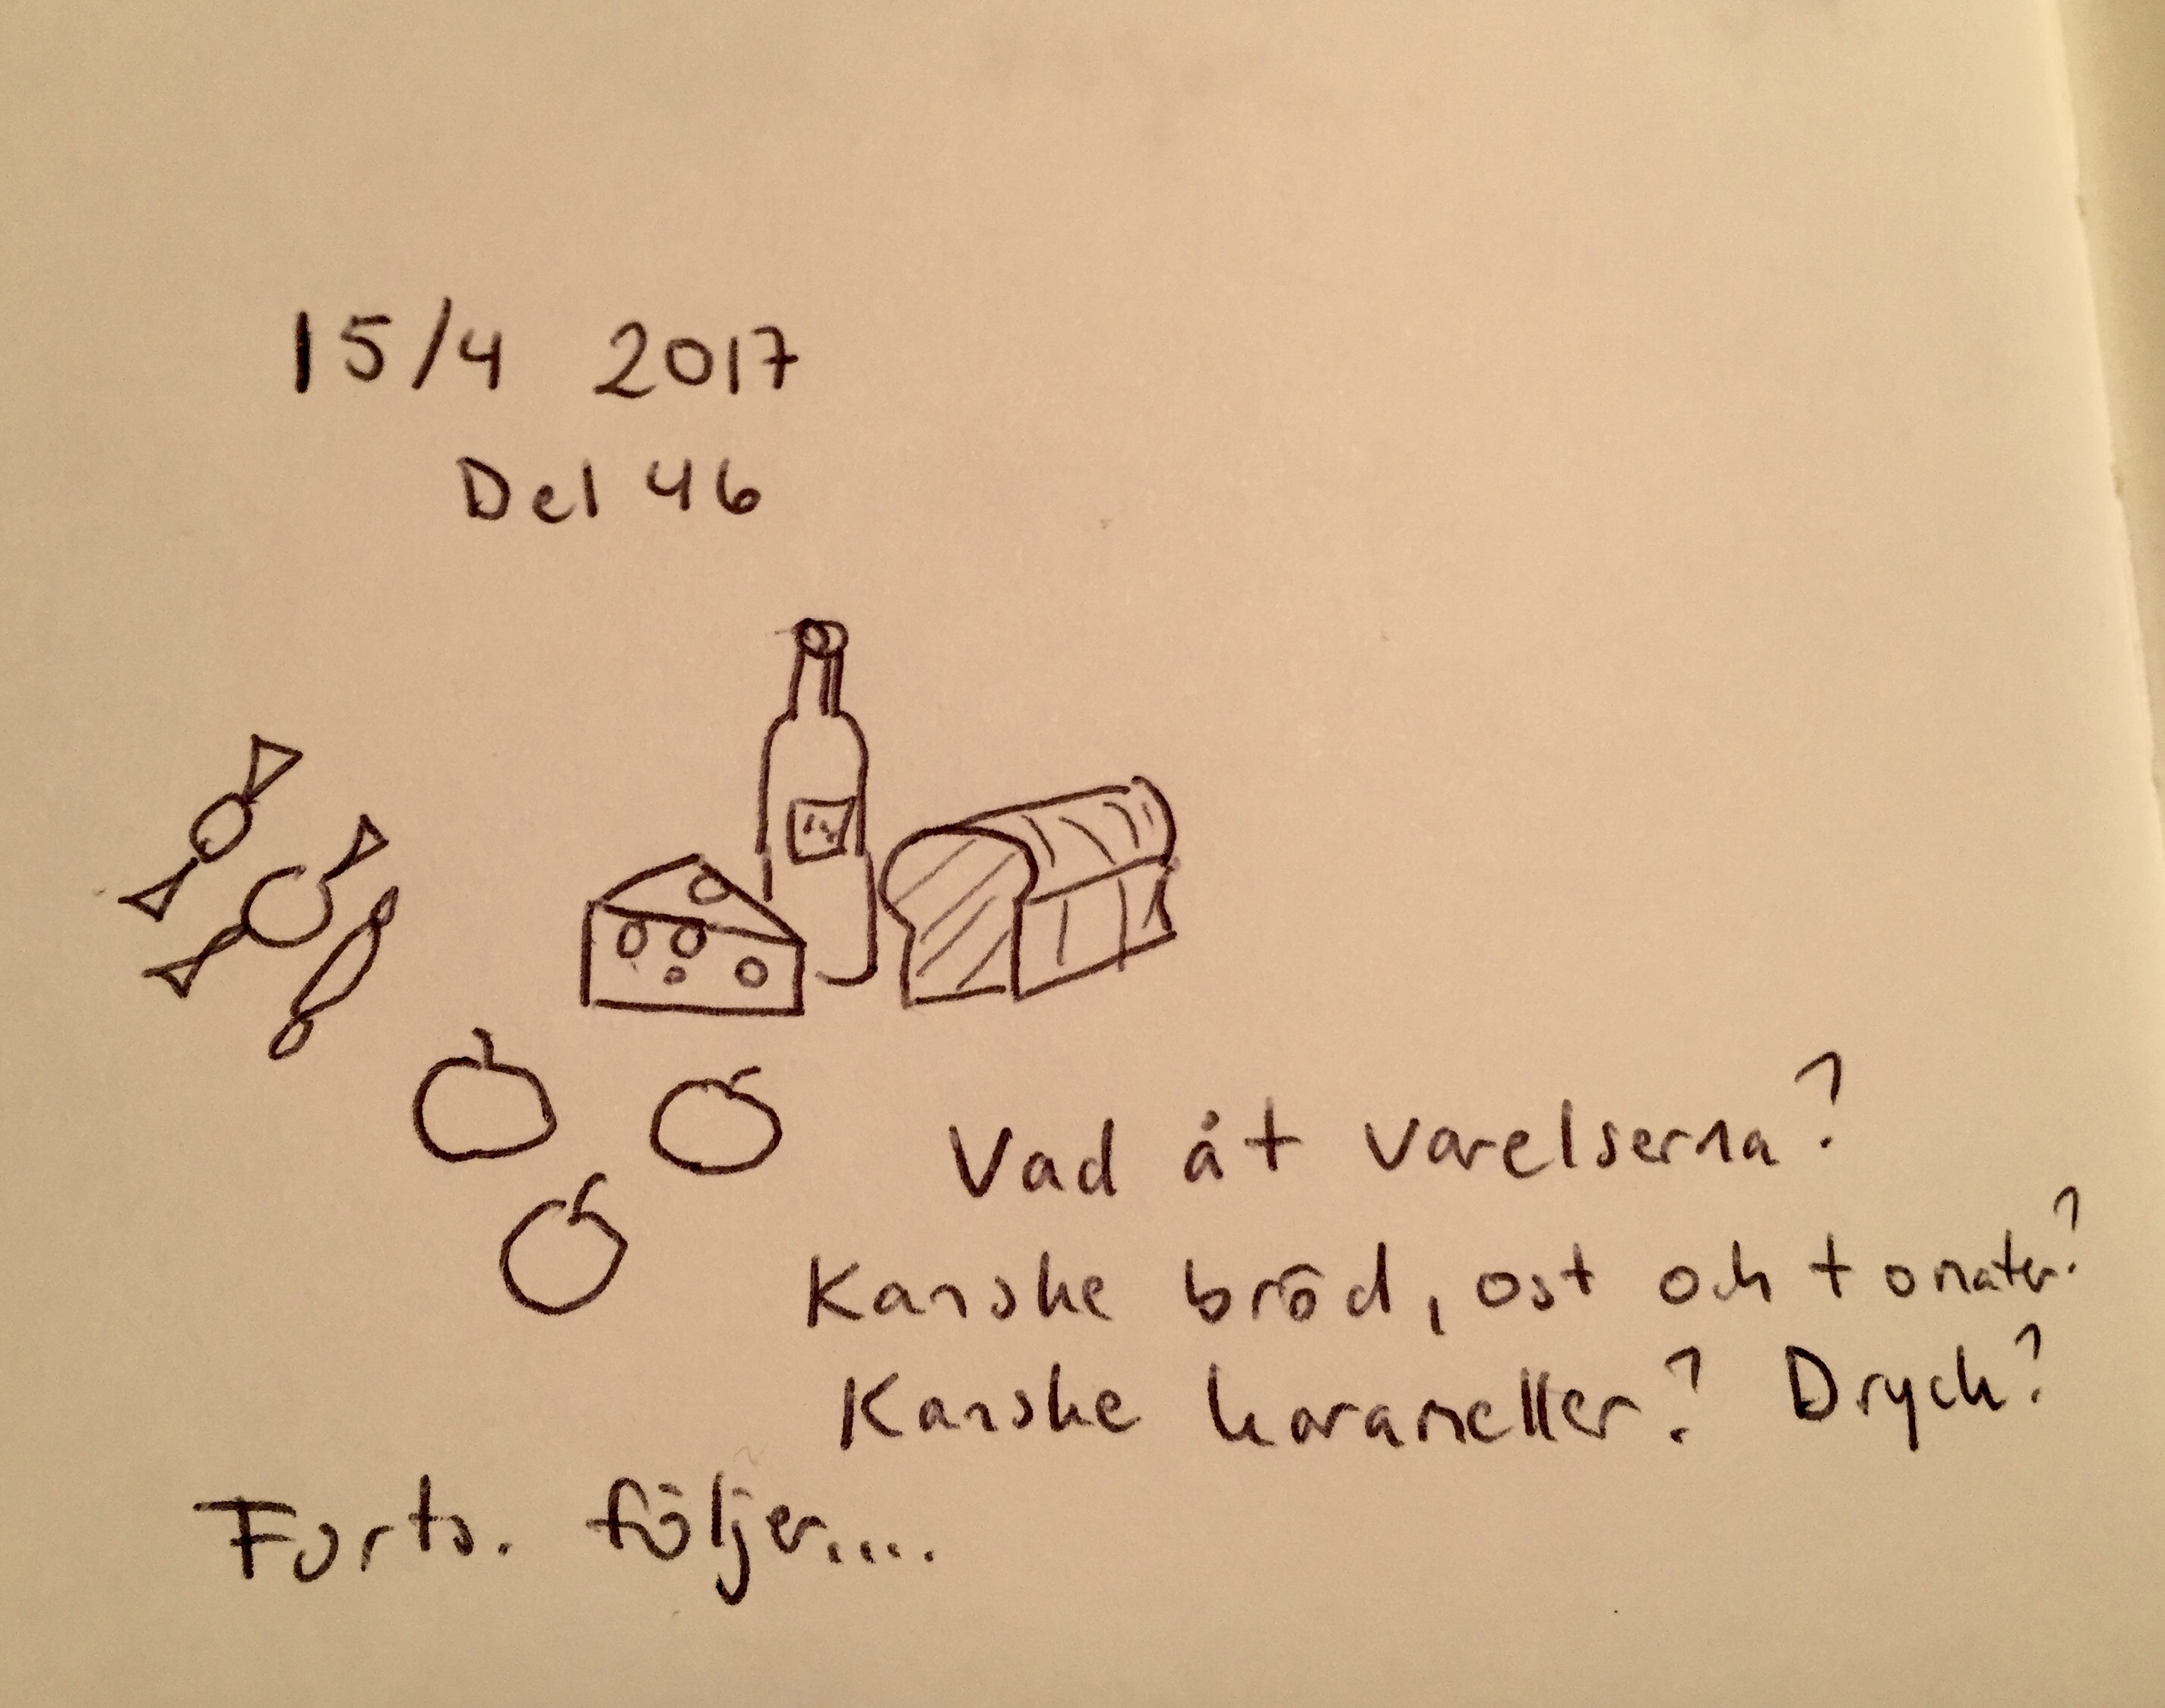 15/4 2017
Del 46
Vad åt varelserna?
Kanske bröd, ost och tomater?
Kanske karameller? Dryck?
Forts. följer....